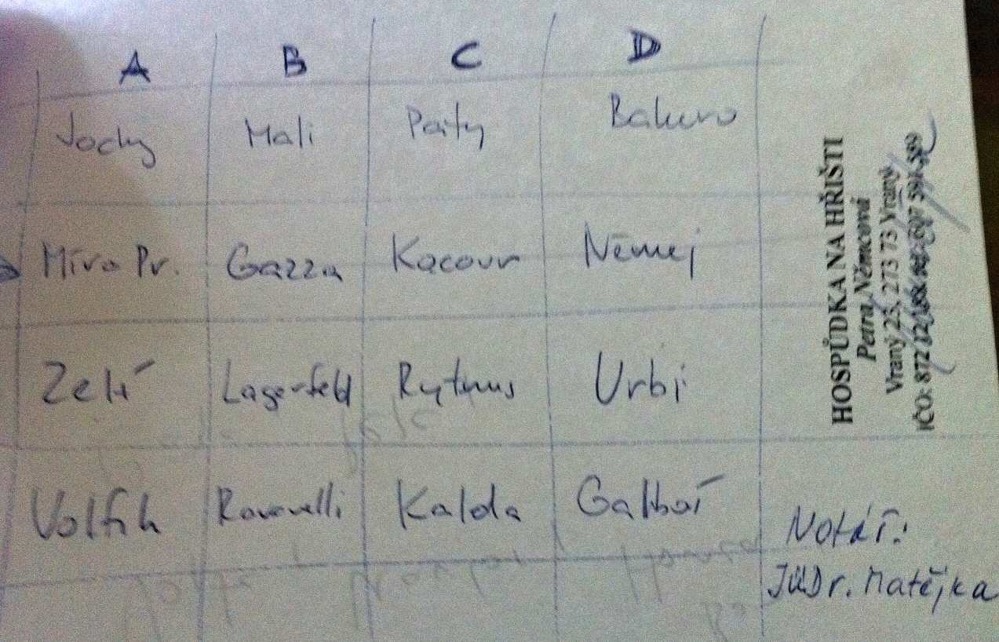 A B C D
Jocky Mali Paity
Míra Pr. Gazza Kocour Němej
Zelí Lagerfeld Rytmus Urbi
Volfík Ravanelli Kalda
Notář:
JUDr. Matějka
HOSPŮDKA NA HŘIŠTI
Petra Němcová
Vraný 25, 273 73 Vraný
IČO: 872